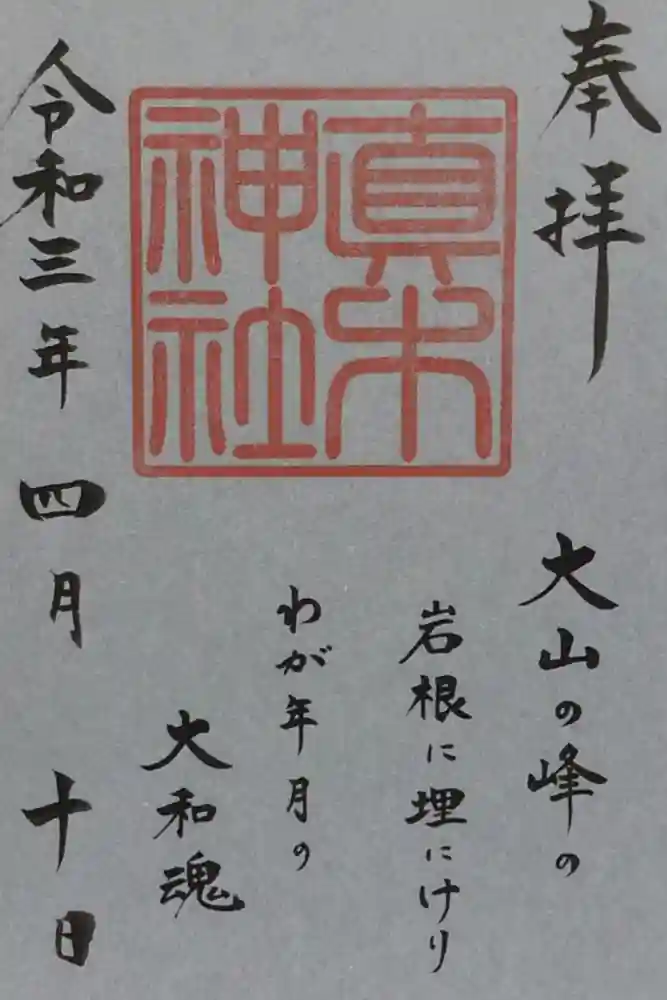 奉拝
大山の峰の
岩根に埋にけり
わが年月の
大和魂
眞木
神社
令和三年四月十日